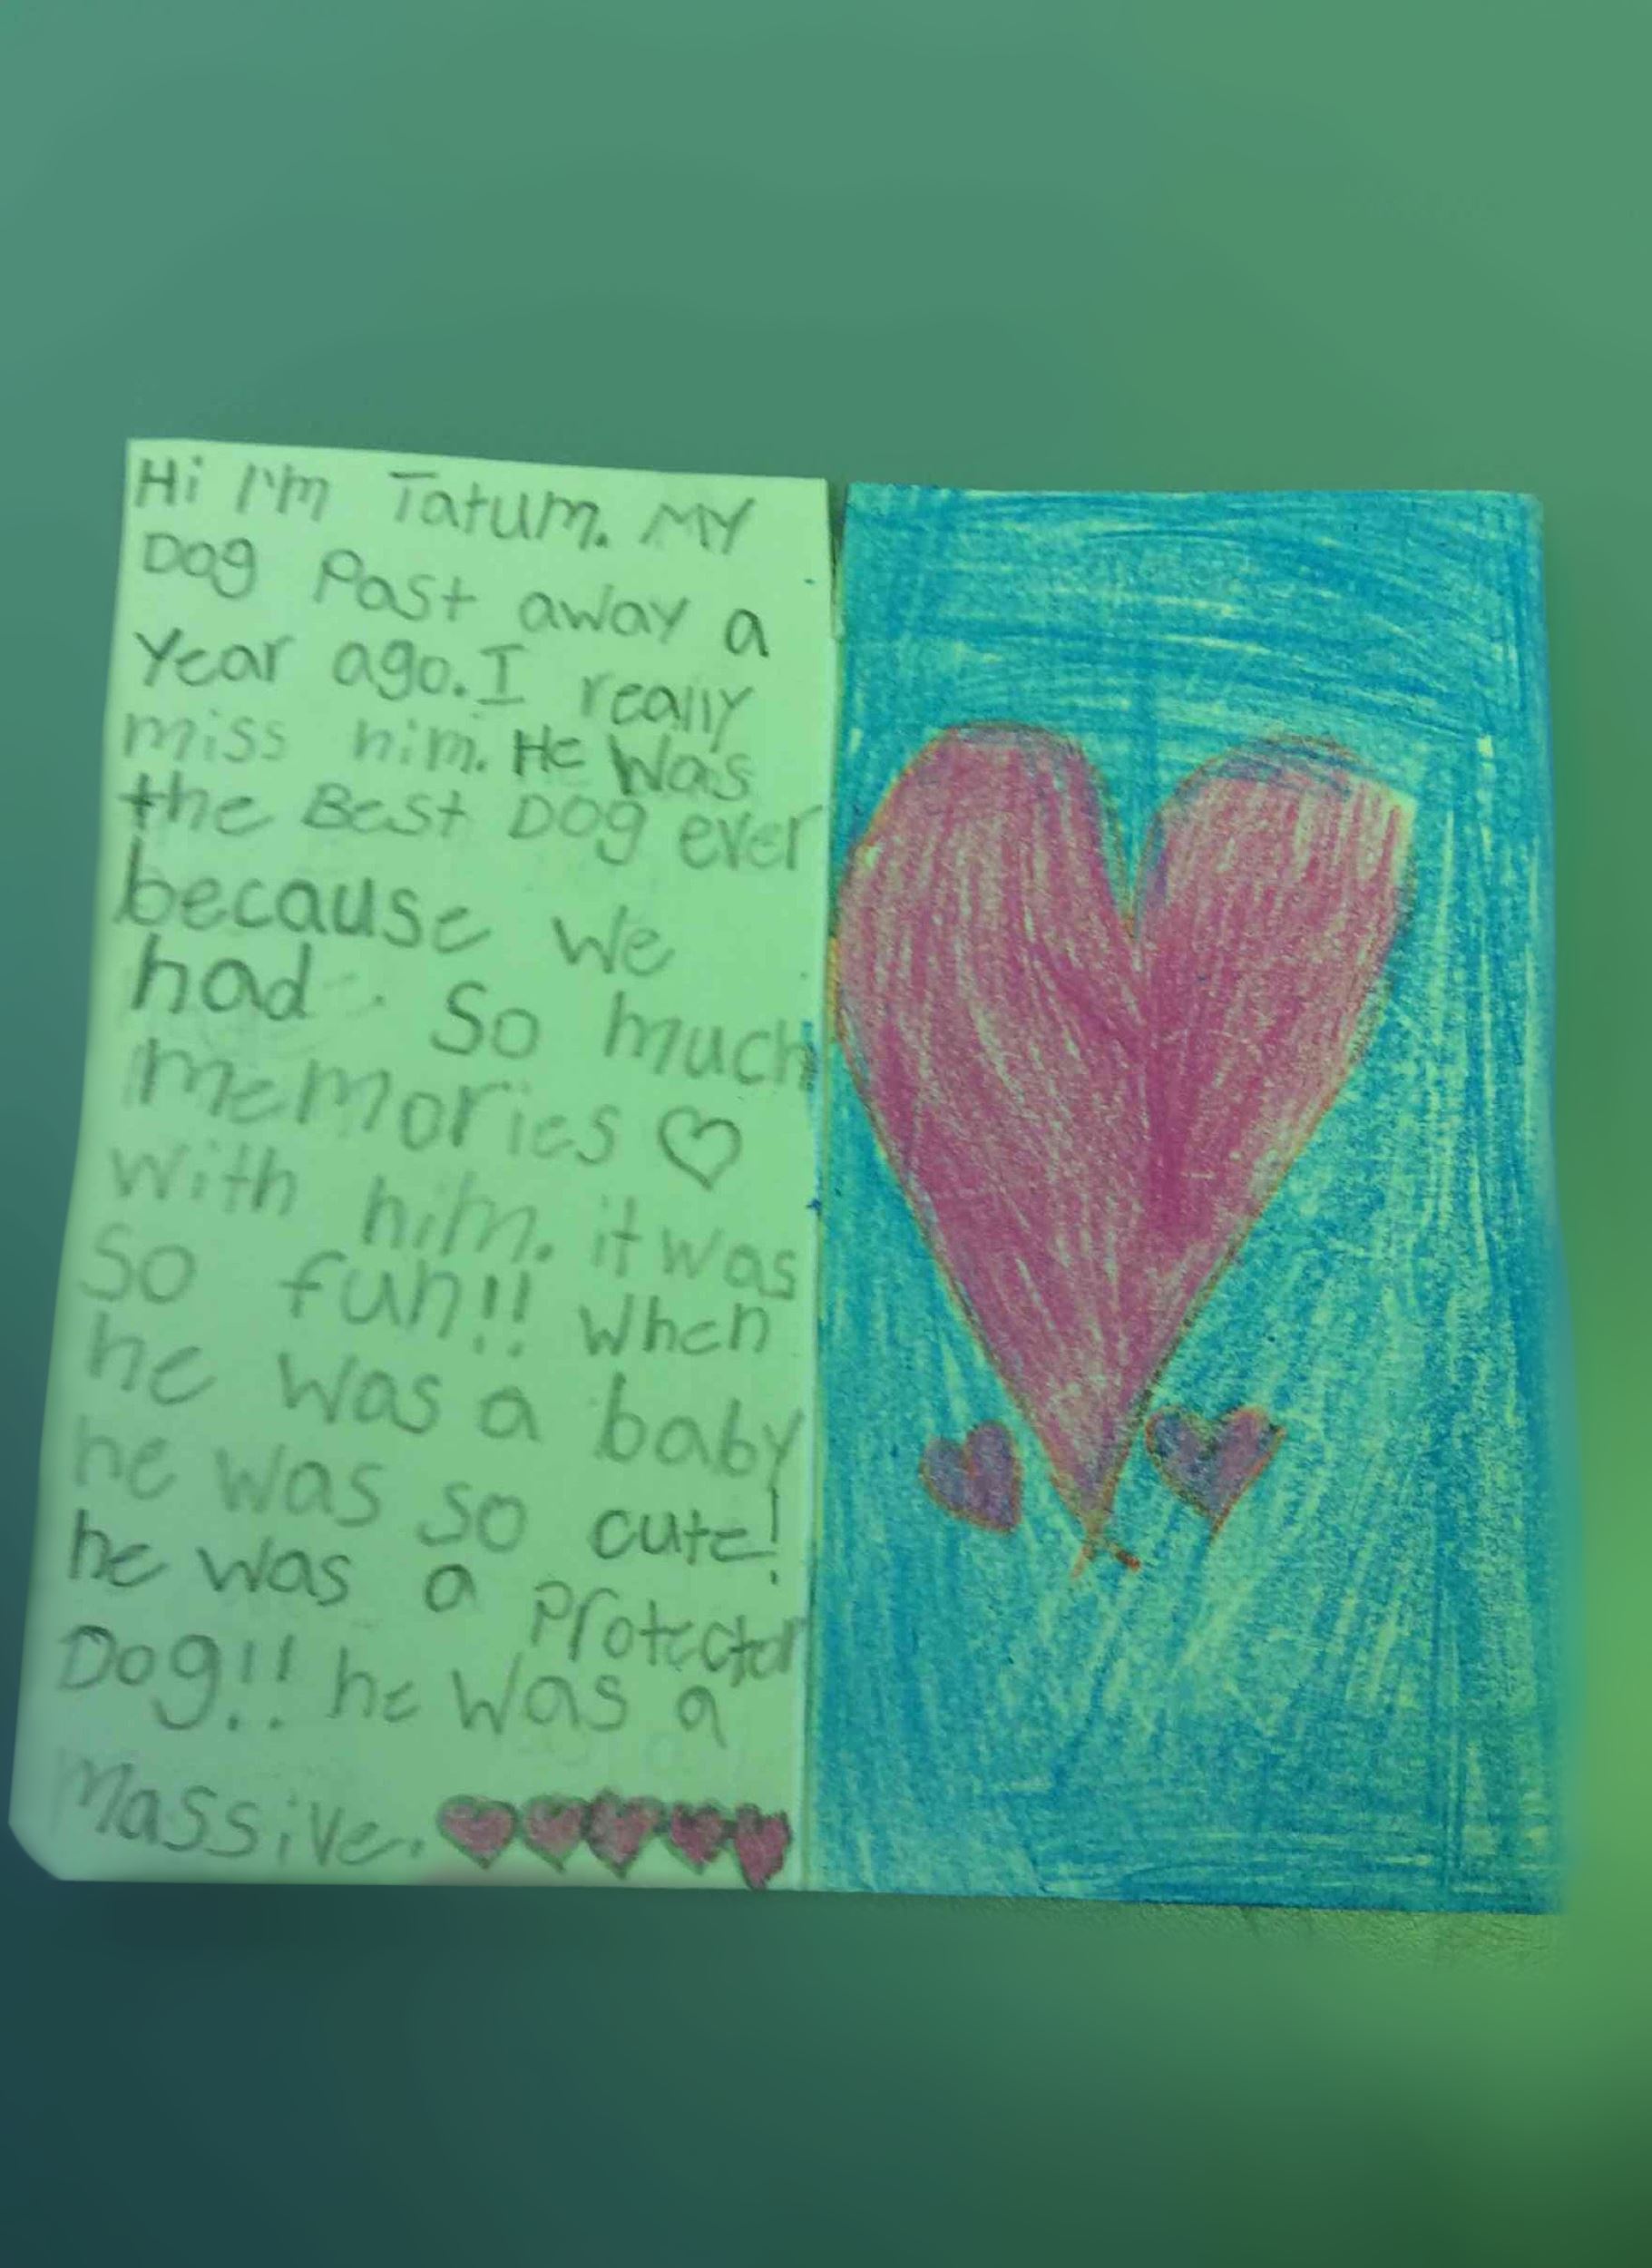 Hi I'm Tatum. MY
Dog Past away a
Year ago. I really
miss him. He Was
the Best Dog ever
because we
had so much
memories ♡
with him. it was
So fun!! when
he was a baby
he was so cute!
he was a Protector
Dog!! he was a
Massive.